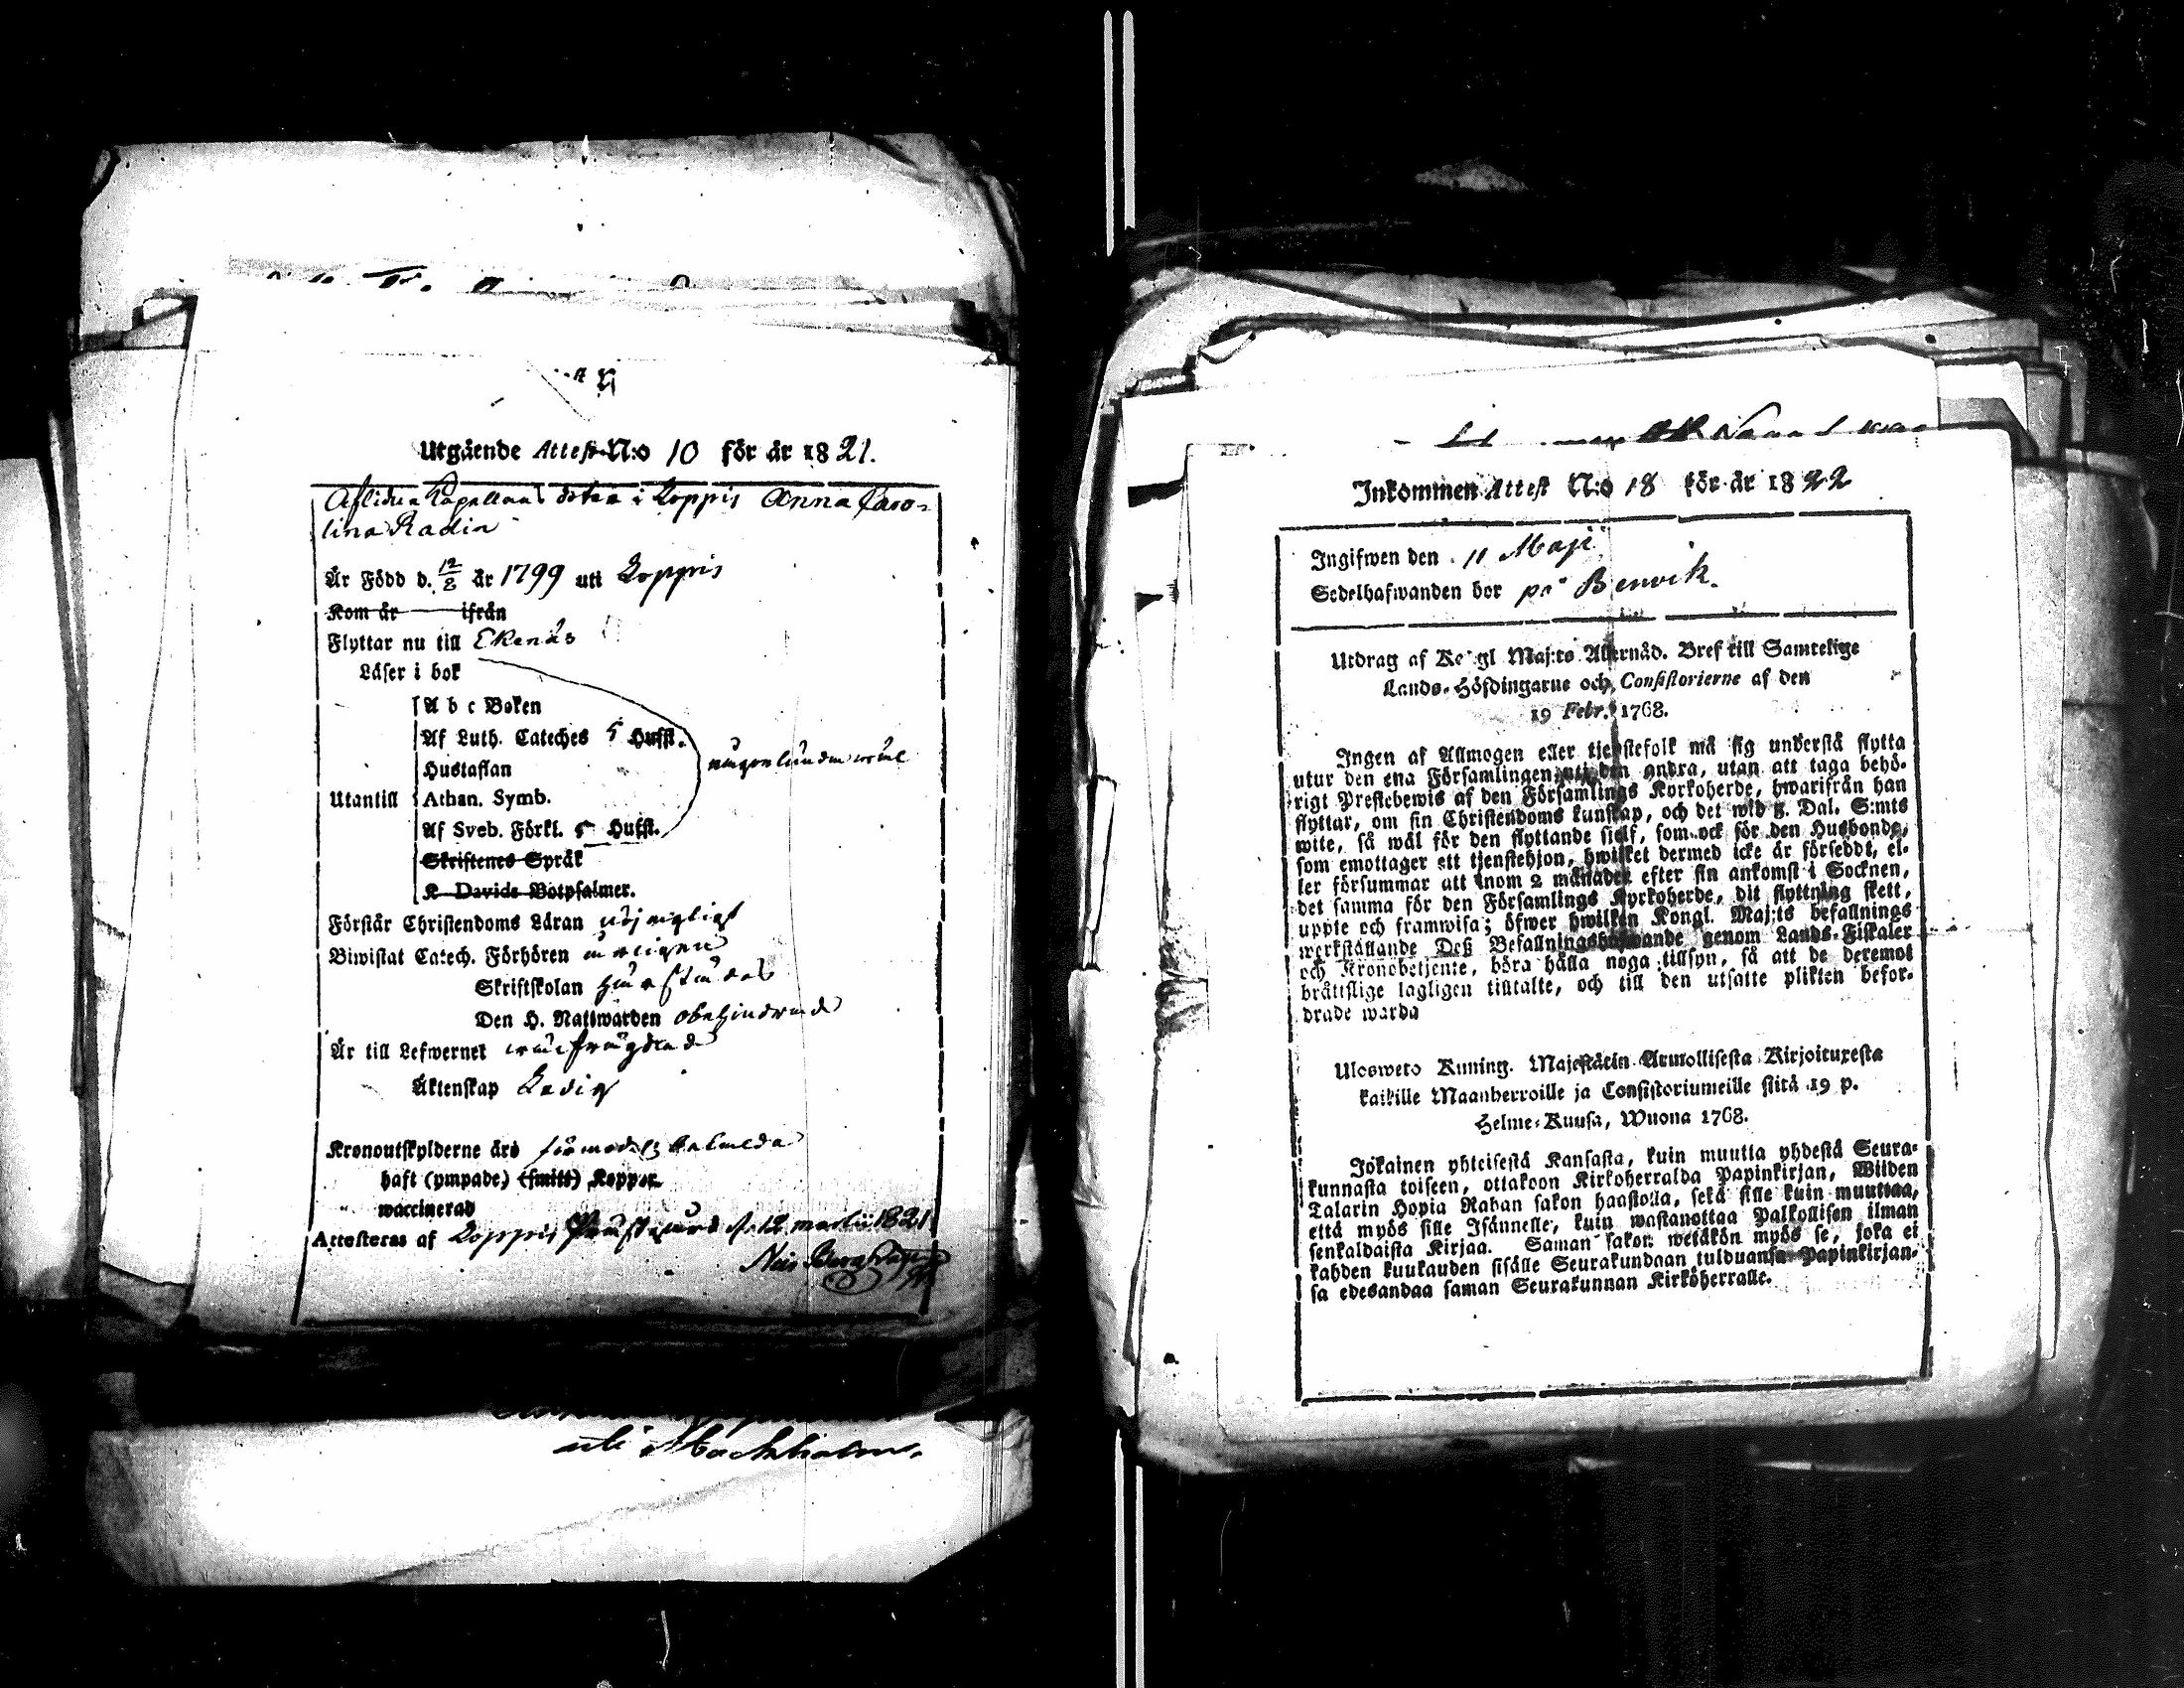 Utgående Attest N:o 10 för år 1821.
Aflidna Capellans doter i Koppis Anna Caro=
lina Radin
Är Född d. 12/8 år 1799 uti Koppis
Kom år ifrån
Flyttar nu till Ekenäs
Läser i bok
A b c Boken
Af Luth. Cateches 5 Hufst.
Hustaflan
någorlunda wäl
Utantill Athan. Symb.
Af Sveb. Förkl. 5 Hufst.
Skriftenes Språk
K Davids Botpsalmer.
Förstår Christendoms Läran nöjagligt
Biwistat Catech. Förhören
Skriftskolan
Den H. Nattwarden obehindrad
Är till Lefwernet wälfrägdad
Äktenskap Ledig
Kronoutskylderne äro betalda
haft (ympade) (smitt) Koppor
waccinerad
Attesteras af Koppis Prästgård d. 12 martii 1821
uti
Inkommen Attest N:o 18 för år 1822
Ingifwen den 11 Maji
Sedelhafwanden bor på Benvik.
Utdrag af Kongl Maj:ts Allernåd. Bref till Samtelige
Lands-Höfdingarne och Consistorierne af den
19 Febr. 1768.
Ingen af Allmogen eller tjenstefolk må sig understå flytta
utur den ena Församlingen uti den andra, utan att taga behö-
rigt Prestebewis af den Församlings Kyrkoherde, hwarifrån han
flyttar, om sin Christendoms kunskap, och det wid 3. Dal. S:mts
wite, så wäl för den flyttande sielf, som ock för den Husbonde,
som emottager ett tjenstehjon, hwilket dermed icke är förseddt, el-
ler försummar att inom 2 månader efter sin ankomst i Socknen,
det samma för den Församlings Kyrkoherde, dit flyttning skett,
uppte och framwisa; öfwer hwilken Kongl. Maj:ts befallnings
werkställande Deß Befallningshafwande genom Lands-Fiskaler
och Kronobetjente, böra hålla noga tillsyn, så att de deremot
bråttslige lagligen tilltalte, och till den utsatte plikten befor-
drade warda
Ulosweto Kuning. Majestätin Armollisesta Kirjoituxesta
kaikille Maanherroille ja Consistoriumeille siitä 19 p.
Helme-Kuusa, Wuona 1768.
Jokainen yhteisestä Kansasta, kuin muutta yhdestä Seura-
kunnasta toiseen, ottakoon Kirkoherralda Papinkirjan, Wiiden
Talarin Hopia Rahan sakon haastolla, sekä sille kuin muuttaa,
että myös sille Isännelle, kuin wastanottaa Palkollisen ilman
senkaldaista Kirjaa. Saman sakon wetäkön myös se, joka ei
kahden kuukauden sisälle Seurakundaan tulduansa Papinkirjan-
sa edesandaa saman Seurakunnan Kirköherralle.